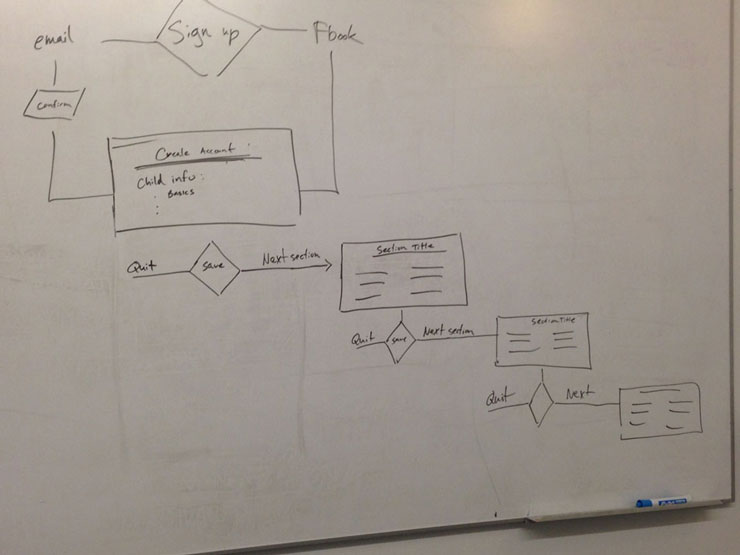 email
Sign up
Fbook
confirm
Create Account :
Child info :
Basics
Quit
save
Next section
Section Title
Quit
save
Next section
Section Title
Quit
Next